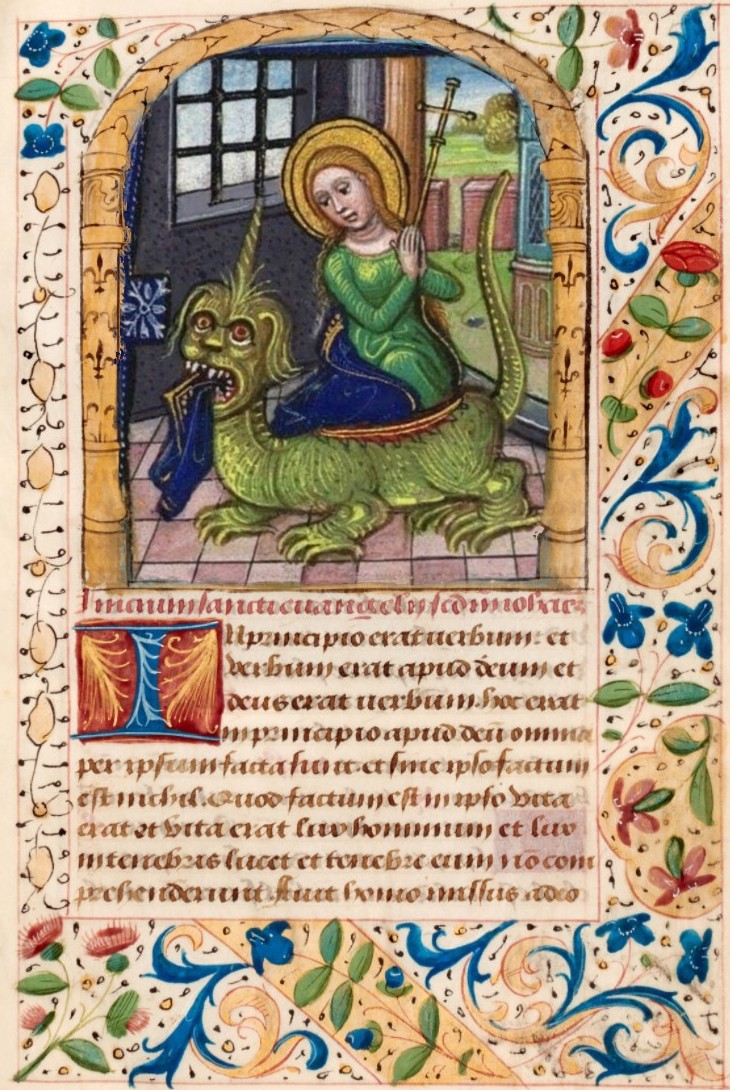 Inicium sancti euangelii scd'm ioha̅ne̅
In principio erat uerbum: et
verbum erat apud deum et
deus erat uerbum. hoc erat
in principio apud deu̅ omnia
per ipsum facta sunt. et sine ipso factum
est nichil. Quod factum est in ipso vita
erat et vita erat lux hominum et lux
in tenebris lucet et tenebre eam no̅ com
prehenderunt. fuit homo missus a deo